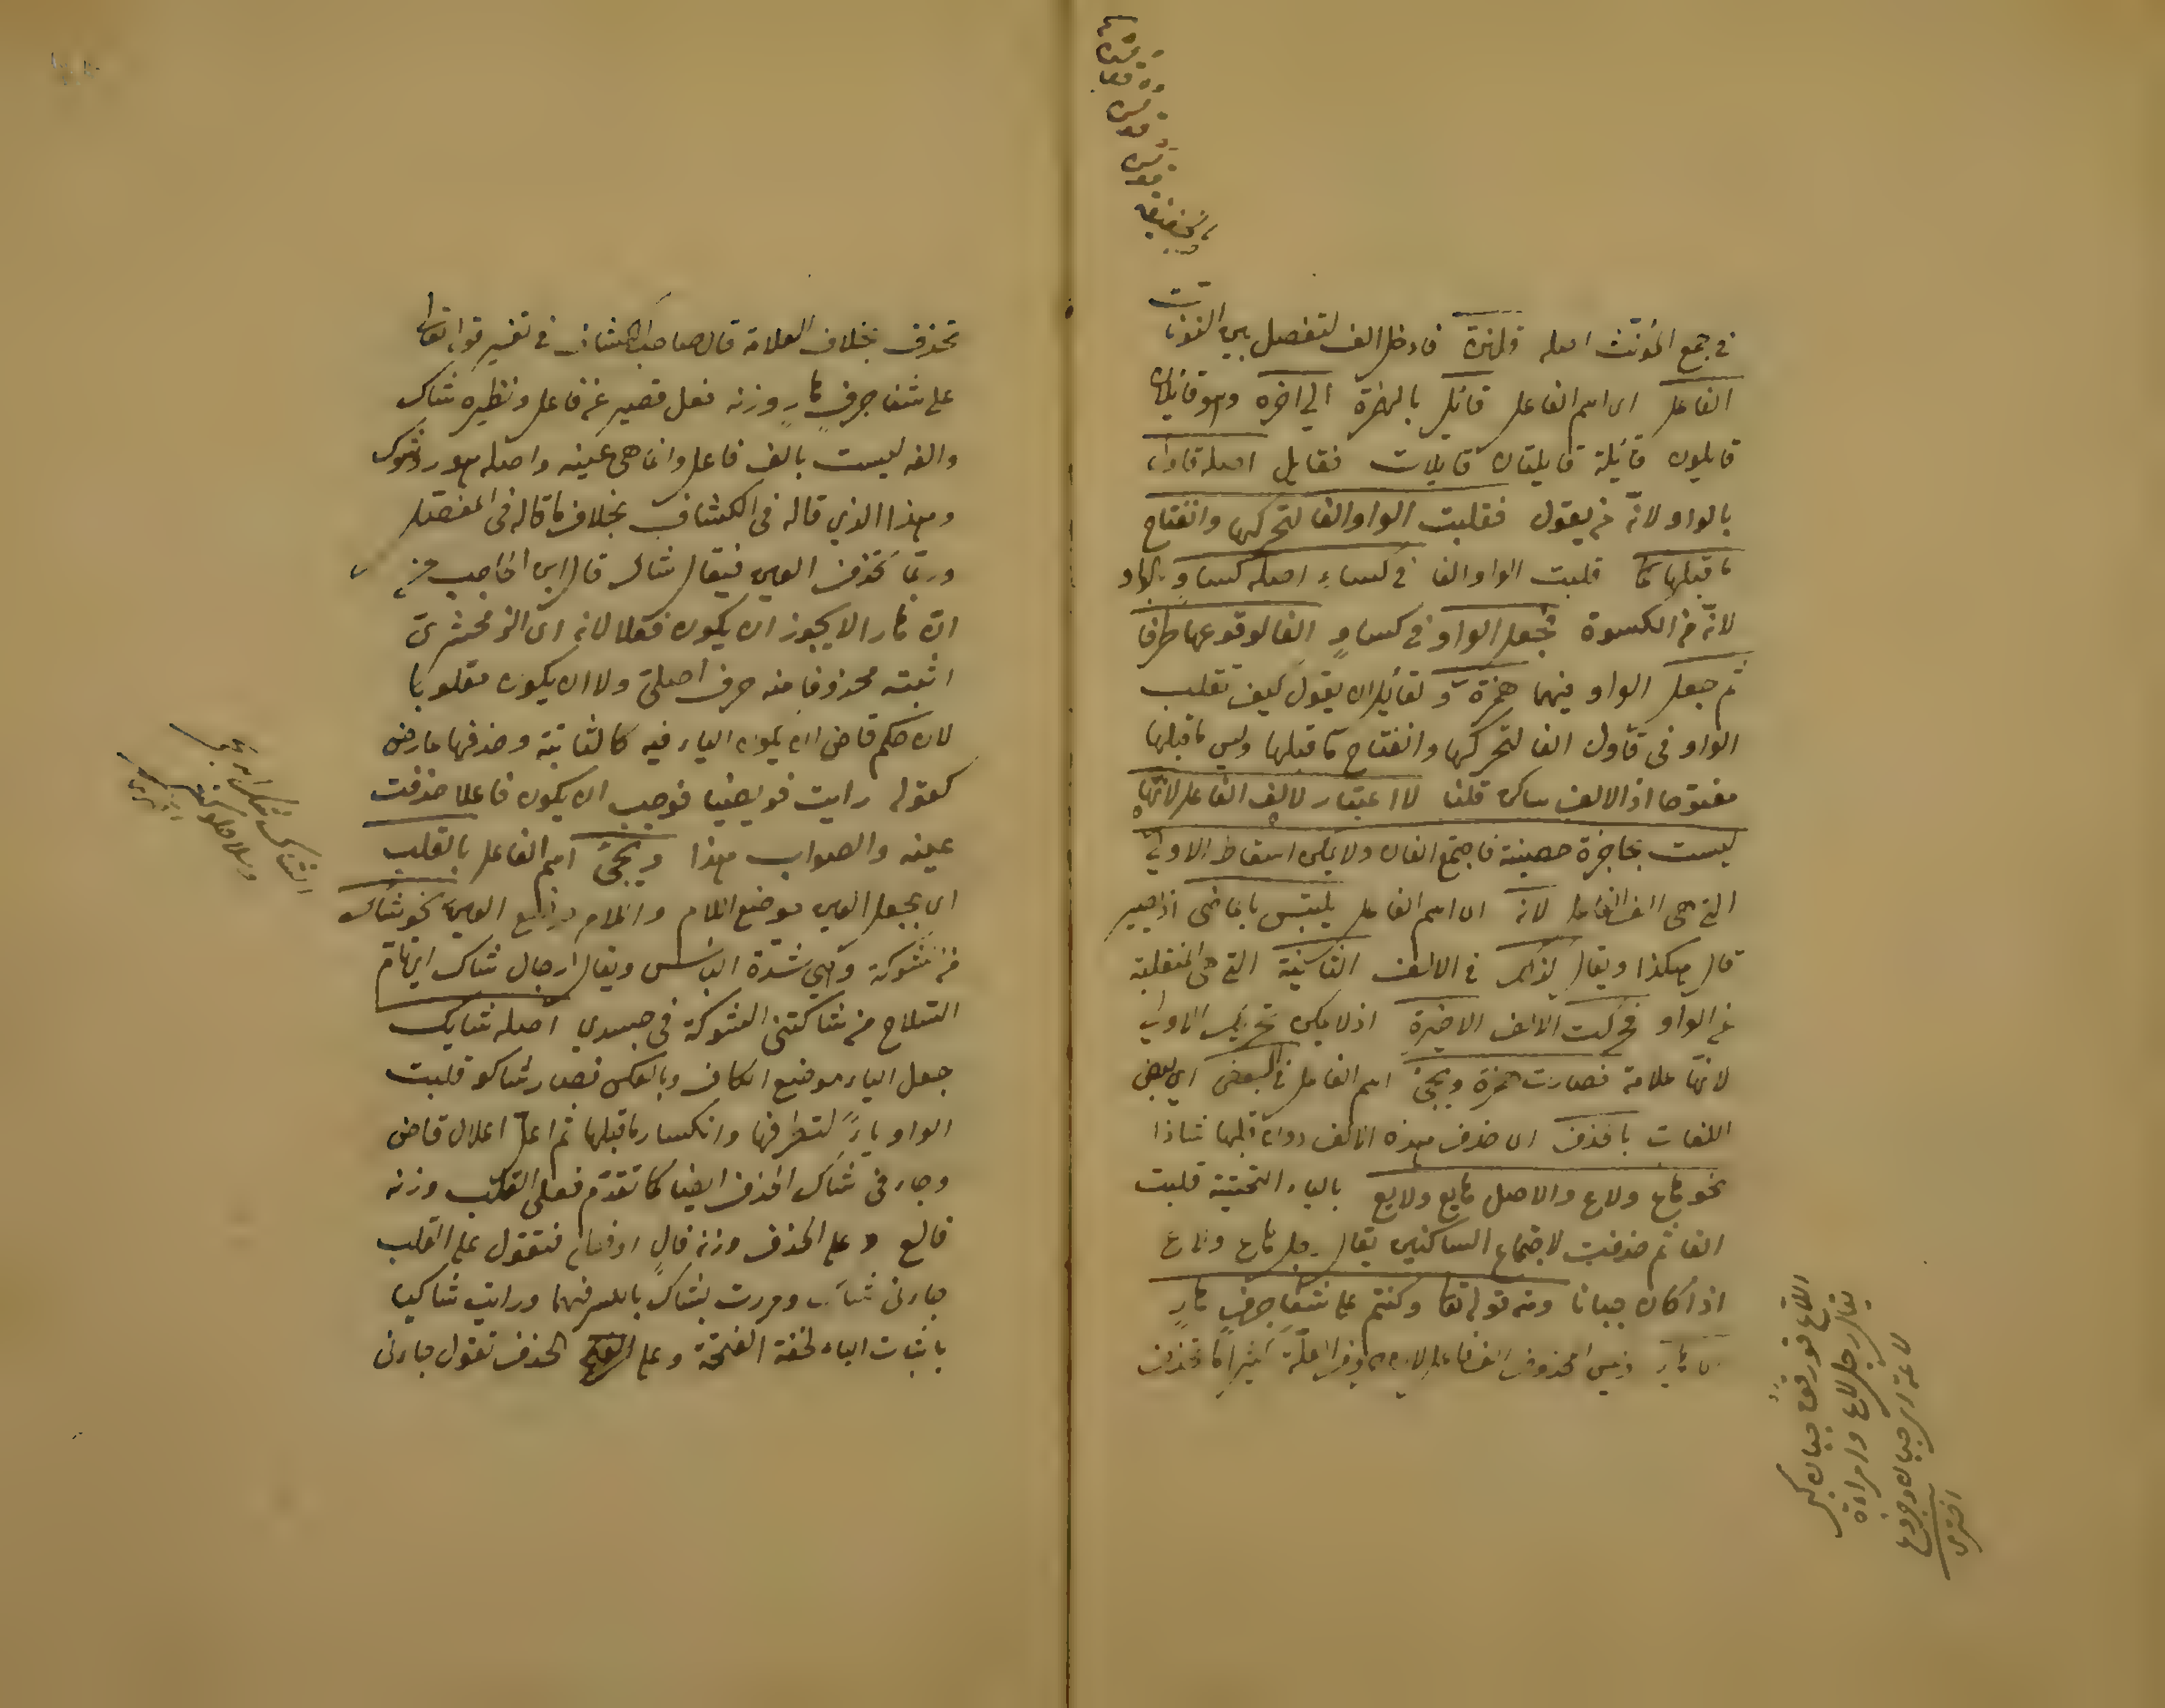 في جمع المؤنث اصله قلنن فادخل الف لتفصل بين النونات
الفاعل اي اسم الفاعل قائل بالهمزة الي اخره وهو قايلان
قايلون قائلة قايلتان قايلات فقايل اصله قاول
بالواو لانه من يقول فقلبت الواو الفا لتحركها وانفتاح
ما قبلها كما قلبت الواو الفا في كساء اصله كساو بالواو
لانه من الكسوة فجعل الواو في كساو الفا لوقوعها طرفا
ثم جعل الواو فيهما همزة ولقائل ان يقول كيف تقلب
الواو في قاول الفا لتحركها وانفتاح ما قبلها وليس ما قبلها
مفتوحا اذ الالف ساكن قلنا لا اعتبار لالف الفاعل لانها
ليست بحاجزة حصينة فاجتمع الفان ولا يمكن اسقاط الاولي
التي هي الف الفاعل لانه اي اسم الفاعل يلتبس بالماضي اذ يصير
قال هكذا ويقال كذلك في الالف الثانية التي هي المنقلبة
عن الواو فحركت الالف الاخيرة اذ لا يمكن تحريك الاولي
لانها علامة فصارت همزة ويجئ اسم الفاعل في البعض اي بعض
اللغات بالحذف اي حذف هذه الالف شاذا
نحو هاع ولاع والاصل هايع ولايع بالياء التحتية قلبت
الفا ثم حذفت لاجتماع الساكنين يقال رجل هاع ولاع
اذا كان جبانا ومنه قوله تعا وكنتم علي شفا جرف هار
اي هاير وليس المحذوف الف فاعل كثيرا ما تحذف
تحذف بخلاف العلامة قال صاحب الكشاف في تفسير قوله تعالي
علي شفا جرف هار وزنه فعل قصير عن فاعل ونظيره شاك
والفه ليست بالف فاعل وانما هي عينه واصله هور وشوك
وهذا الذي قاله في الكشاف بخلاف ما قاله في المفصل
وربما تحذف العين فيقال شاك قال ابن الحاجب
ان هار الا يجوز ان يكون فعلا لانه اي الزمخشري
اثبته محذوفا منه حرف اصلي ولا ان يكون مقلوبا
لان حكم قاض ان يكون الياء فيه كالثابتة وحذفها عارض
كقوله رايت فوجب ان يكون فاعلا حذفت
عينه والصواب هذا ويجئ اسم الفاعل بالقلب
اي بجعل العين موضع اللام واللام موضع العين نحو شاك
من شوكة وهي شدة الباس ويقال رجل شاك اي تام
السلاح من شاكتني الشوكة في جسدي اصله شايك
جعل الياء موضع الكاف وبالعكس فصار شاكو قلبت
الواو ياء لتطرفها وانكسار ما قبلها ثم اعل اعلال قاض
وجاء في شاك الحذف ايضا كما تقدم فعلي القلب وزنه
فالع وعلي الحذف وزنه فال فتقول علي القلب
جاءني شاك ومررت بشاك بالكسر فيهما ورايت شاكيا
باثبات الياء لخفة الفتحة وعلي الحذف تقول جاءني
يقال رجل لاع وامراة
لاعة اي جبان وجزوع
اختري